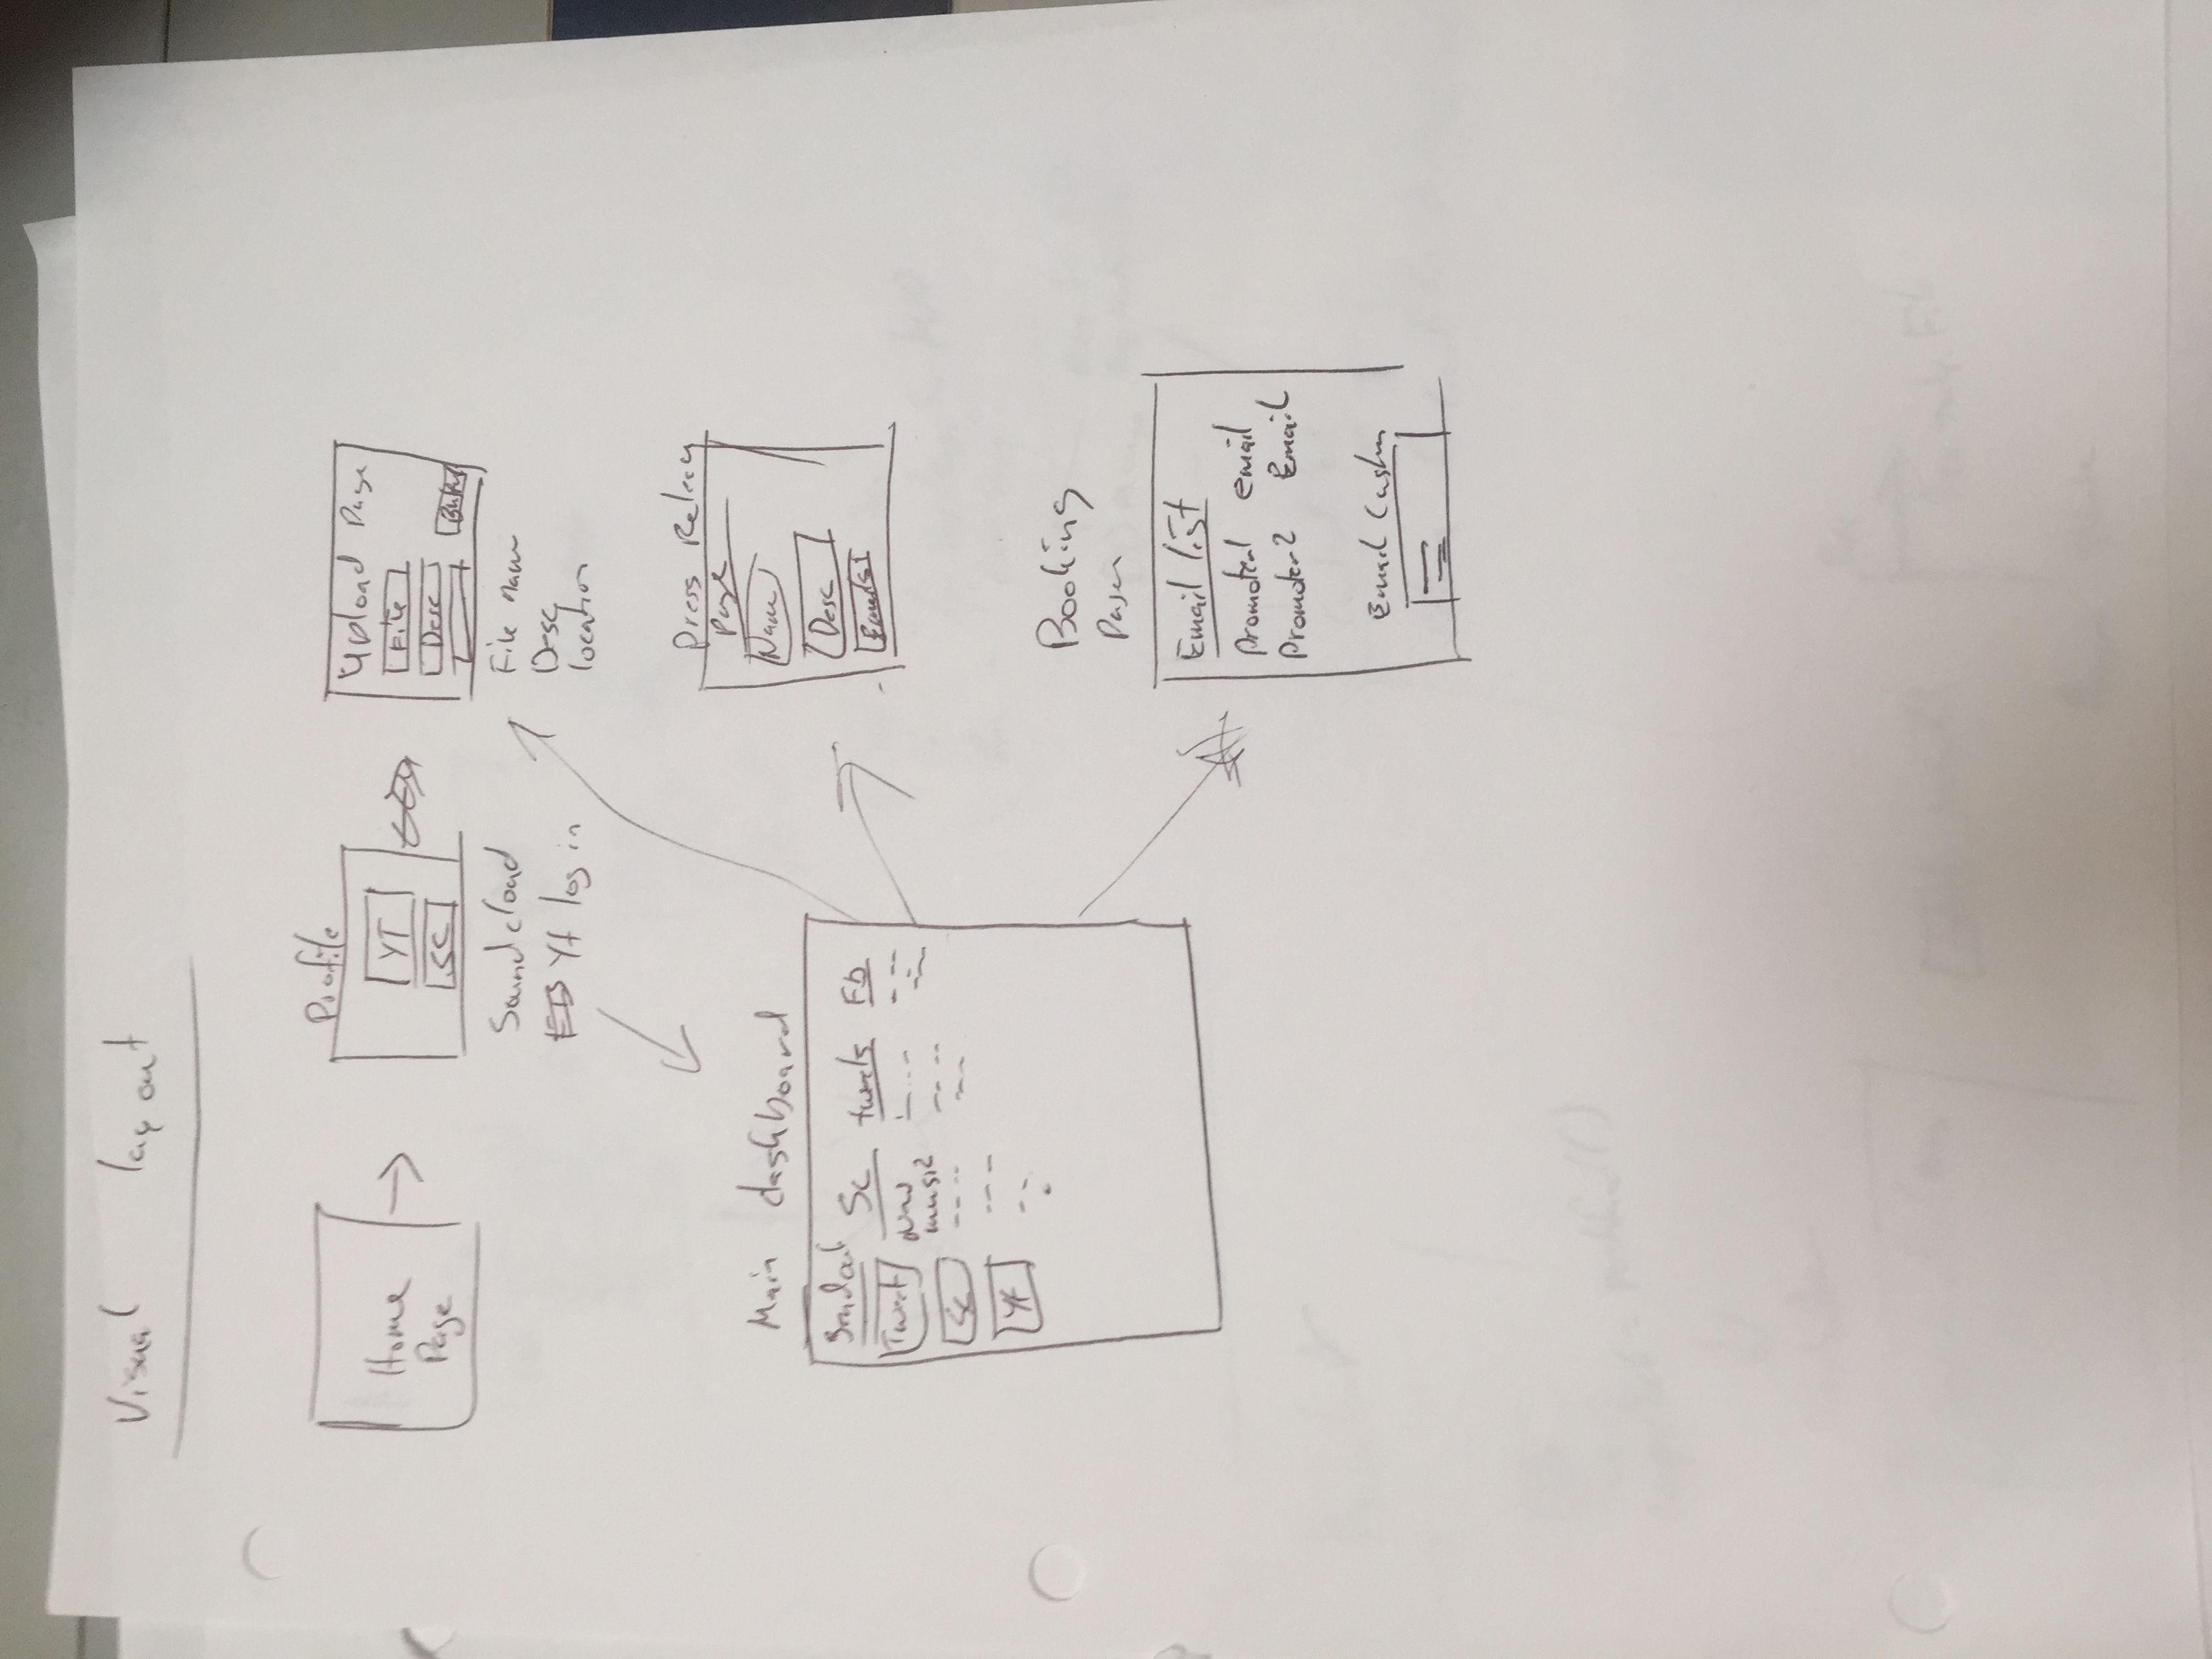 Visual layout
Home
Page
Profile
YT
SC
Soundcloud
Yt log in
Upload Page
File
Desc
File name
Desc
location
Main dashboard
SC
tweets
Fb
Tweet
New
music
SC
Yt
Press Release
Page
Name
Desc
Booking
Email list
Promoter1 email
Promoter2 Email
Email Custom